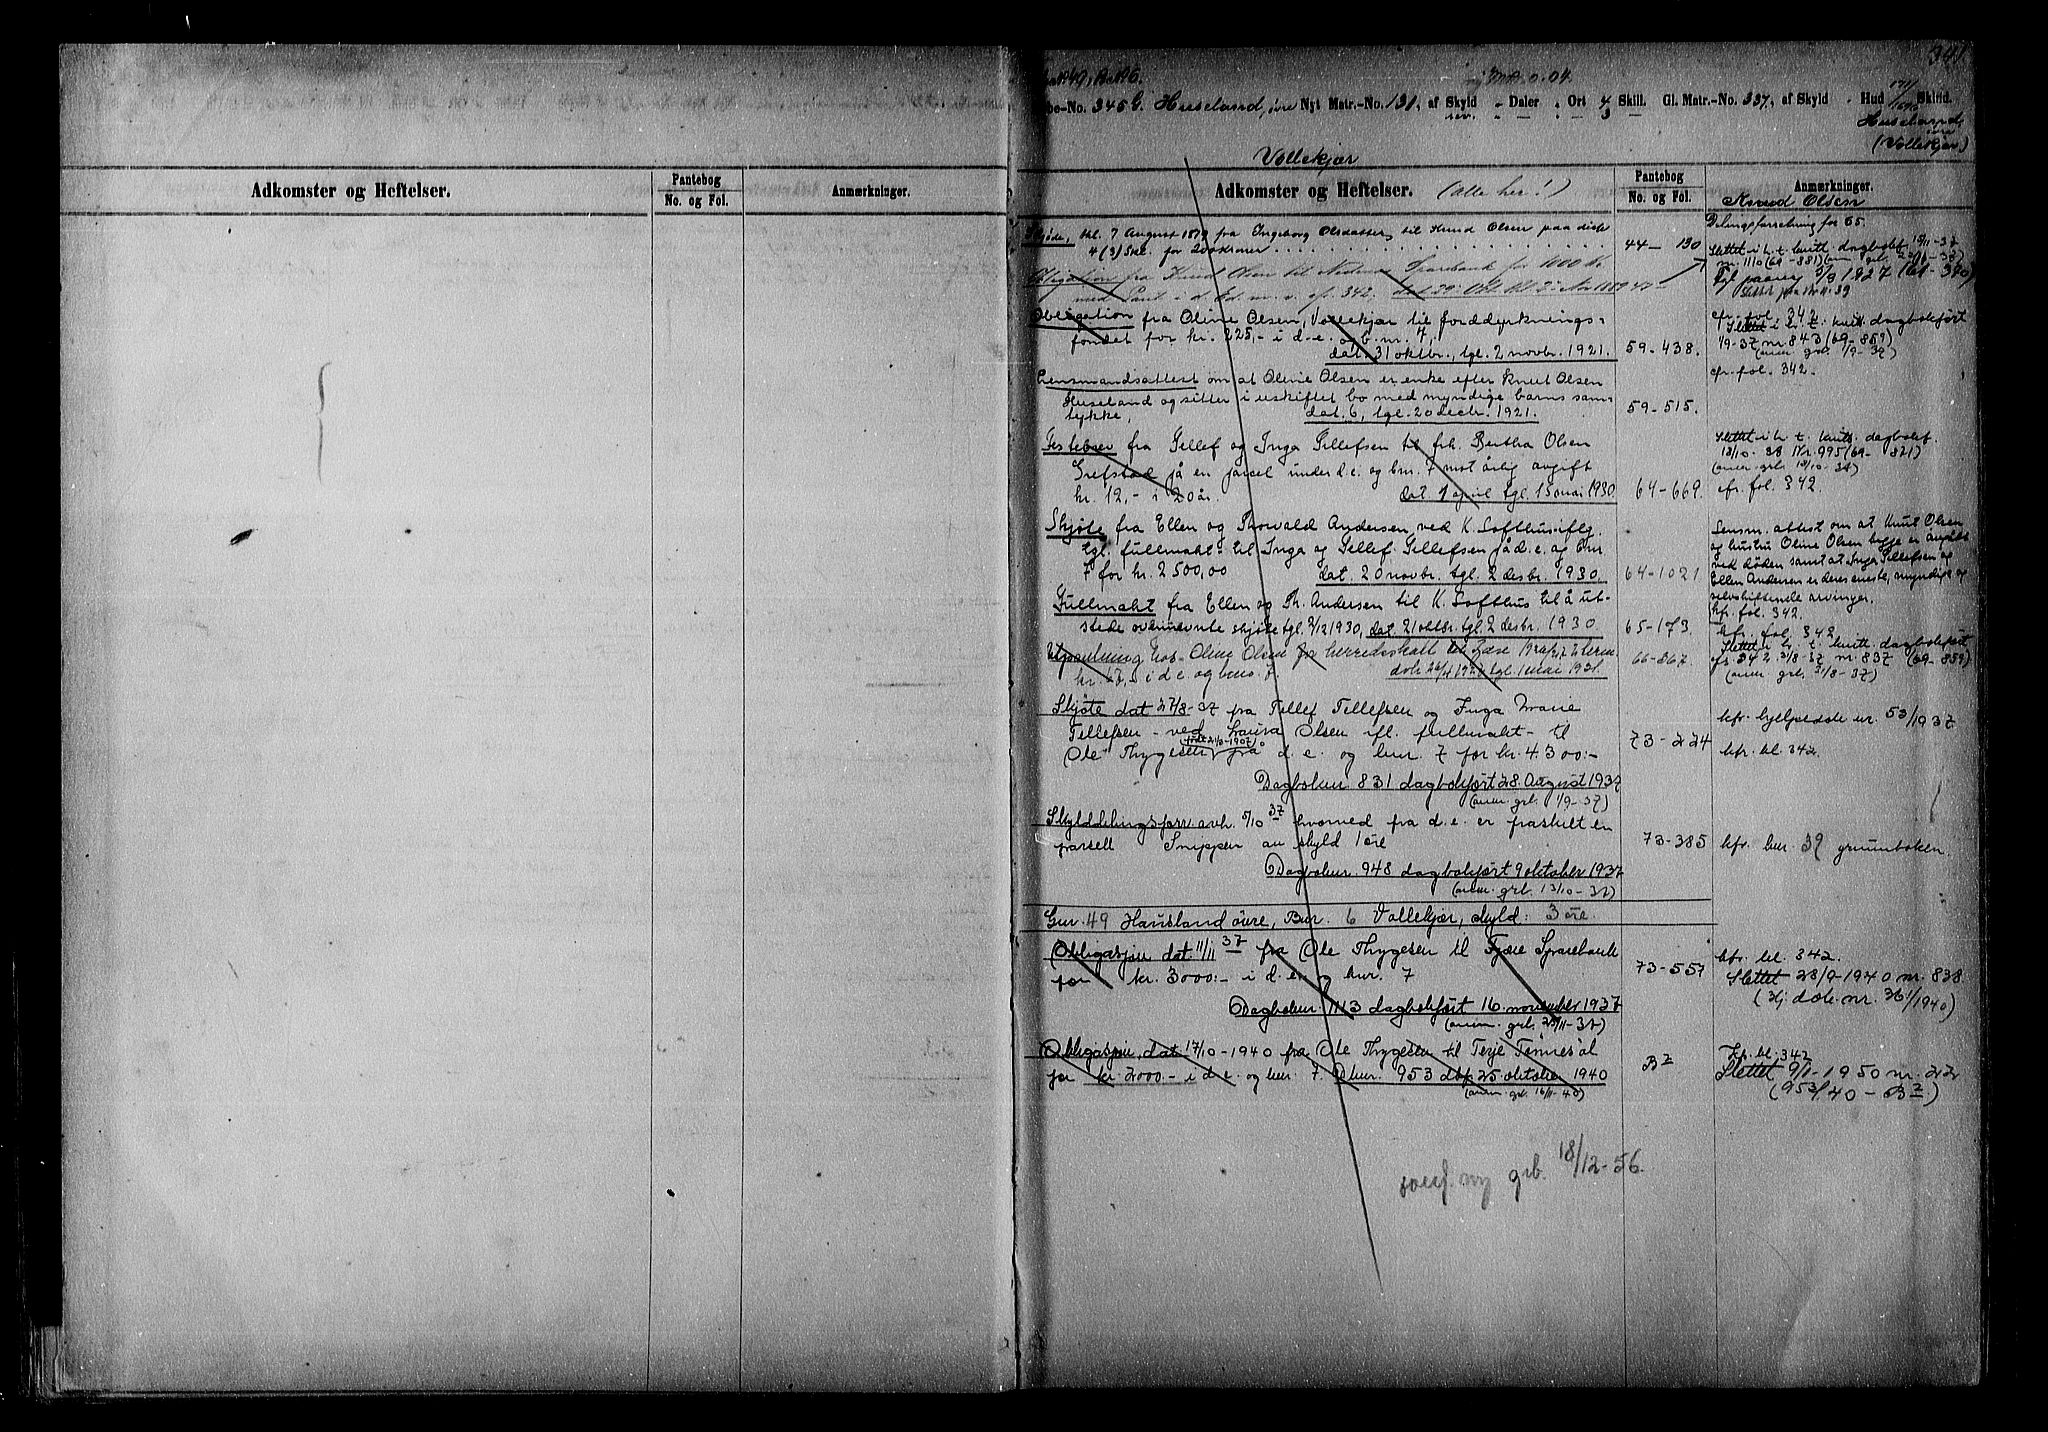 Adkomster og Heftelser.
Pantebog
No. og Fol.
Anmærkninger.
341
49, Br. No 6.
0.04.
be-No. 345 G. Huseland, øvre Nyt Matr.-No. 131, af Skyld - Daler . Ort 4 Skill. Gl. Matr.-No. 337, af Skyld . Hud Skind.
rev. - - 3 -
Huseland,
øvre
(Vollekjær)
Vollekjær
Adkomster og Heftelser. (alle her!)
Pantebog
No. og Fol.
Anmærkninger.
Knud Olsen
Skjøde, tkl. 7 August 1879 fra Ingeborg Olsdatter, til Knud Olsen paa dette
4 (3) Skl. for 200 Kroner
44 - 130
Delingsforretning fol. 65.
Slettet i h. t. kvitt. dagbokf. 15/11-37
nr. 1110 (69-881)
Obligation fra Knud Olsen til Nedenes Sparebank for 1000 Kr.
med Pant i d. Ed. m. v. cfr. 342.
1927 (61-370)
Obligation fra Oline Olsen, Vollekjær til forddyrknings-
fondet for kr. 225,- i d. e. og b. nr. 7,
dat. 31 oktbr., tgl. 2 novbr. 1921.
59-438.
cfr. fol. 342
Slettet i h. t. kvitt. dagbokført
1/9-37 nr. 843 (69-859)
(anm. grb. 1/9-37)
Lensmandsattest om at Oline Olsen er enke efter Knut Olsen
Huseland og sitter i uskiftet bo med myndige barns sam-
tykke,
dat. 6, tgl. 20 decbr. 1921.
59-515.
cfr. fol. 342.
Festebrev fra Tellef og Inga Tellefsen til frk. Bertha Olsen
Grefstad på en parcel under d. e. og bnr. 7 mot årlig avgift
kr. 12,- i 20 år.
dat 1 april tgl. 15 mai 1930.
64-669.
Slettet i h. t. kvitt. dagbokf.
13/10-38 Nr. 995 (69-
821)
(anm. grb. 13/10-38)
cfr. fol. 342.
Skjøte fra Ellen og Thorvald Andersen ved K. Lofthus iflg.
tgl. fullmakt til Inga og Tellef Tellefsen på d. e. og bnr
7 for kr. 2500,00
dat 20 novbr. tgl. 2 desbr. 1930.
64-1021
Lensm. attest om at Knut Olsen
og hustru Oline Olsen begge er avgått
ved døden samt at Inga Tellefsen og
Ellen Andersen er deres eneste, myndige og
selvskiftende arvinger.
kfr. fol. 342.
Fullmakt fra Ellen og Th. Andersen til K. Lofthus til å ut-
stede ovennevnte skjøte tgl. 2/12 1930, dat 21 oktbr. tgl. 2 desbr. 1930.
65-173.
kfr. fol. 342.
Utpantning hos Oline Olsen for herredsskatt til
kr. 67,- i d. e. og bnr. 7. tgl. 1 mai 1931.
66-867.
Slettet i h. t. kvitt. dagbokført
cfr. 342. 31/8-37 nr. 837 (69-859)
(anm. grb. 31/8-37)
Skjøte dat 27/8-37 fra Tellef Tellefsen og Inga Marie
Tellefsen - ved Laura Olsen ifl. fullmakt - til
født 21/3-1907
Ole Thygesen på d. e. og bnr. 7 for kr. 4300:-
73-224
kfr. hjelpedok nr. 53/1937
kfr. bl. 342.
Dagboknr. 831 dagbokført 28 August 1937
(anm. grb. 1/9-37)
Skylddelingsforr. avh. 5/10 37 hvorved fra d. e. er fraskilt en
parsell Snippen av skyld 1 øre
73-385
kfr. bnr. 39 grunnboken.
Dagboknr. 948 dagbokført 9 oktober 1937
(anm. grb. 13/10-37)
Gnr. 49 Hausland øvre, Bnr. 6 Vollekjær, skyld: 3 øre.
Obligasjon dat. 11/11 37 fra Ole Thygesen til Fjære Sparebank
for kr. 3000:- i d. e. og bnr. 7
73-557
kfr. bl. 342.
Slettet 28/9-1940 nr. 838
(Hj. dok. nr. 361/1940)
Dagboknr. 1113 dagbokført 16. november 1937
(anm. grb. 23/11-37)
Obligasjon, dat 17/10-1940 fra Ole Thygesen til Terje Tønnesøl
for kr. 2000.- i d. e. og bnr. 7. Dbnr. 953 dbf. 25. oktober 1940
(anm. grb. 16/11-40)
B 7
Kfr. bl. 342
Slettet 9/1-1950 nr. 22
(953/40 - B 7)
overf. ny grb. 18/12-56.